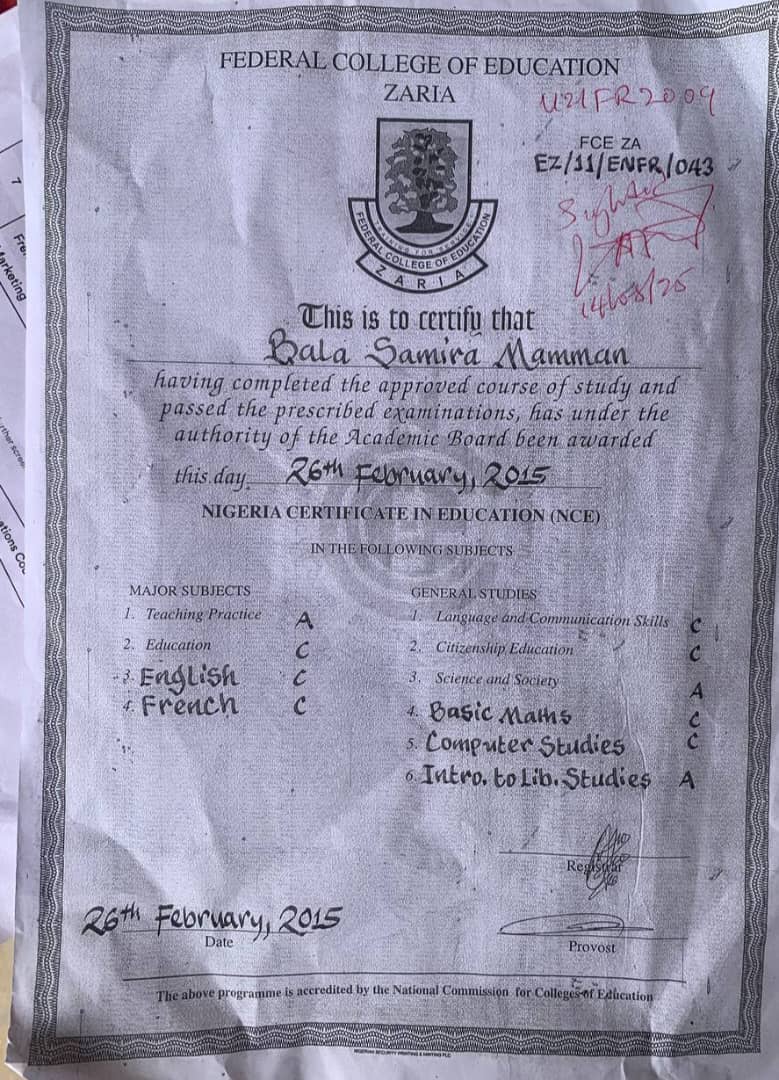 FEDERAL COLLEGE OF EDUCATION
ZARIA
U21FR2009
FCE ZA
EZ/11/ENFR/043
Sighted
14/08/25
TRAINING FOR SERVICE
FEDERAL COLLEGE OF EDUCATION
ZARIA
This is to certify that
Bala Samira Mamman
having completed the approved course of study and
passed the prescribed examinations, has under the
authority of the Academic Board been awarded
this day 26th February, 2015
NIGERIA CERTIFICATE IN EDUCATION (NCE)
IN THE FOLLOWING SUBJECTS
MAJOR SUBJECTS
1. Teaching Practice A
2. Education C
3. English C
4. French C
GENERAL STUDIES
1. Language and Communication Skills C
2. Citizenship Education C
3. Science and Society A
4. Basic Maths C
5. Computer Studies C
6. Intro. to Lib. Studies A
Registrar
26th February, 2015
Date
Provost
The above programme is accredited by the National Commission for Colleges of Education
NIGERIAN SECURITY PRINTING & MINTING PLC
7
Fre
arketing
rther scree
ations Co